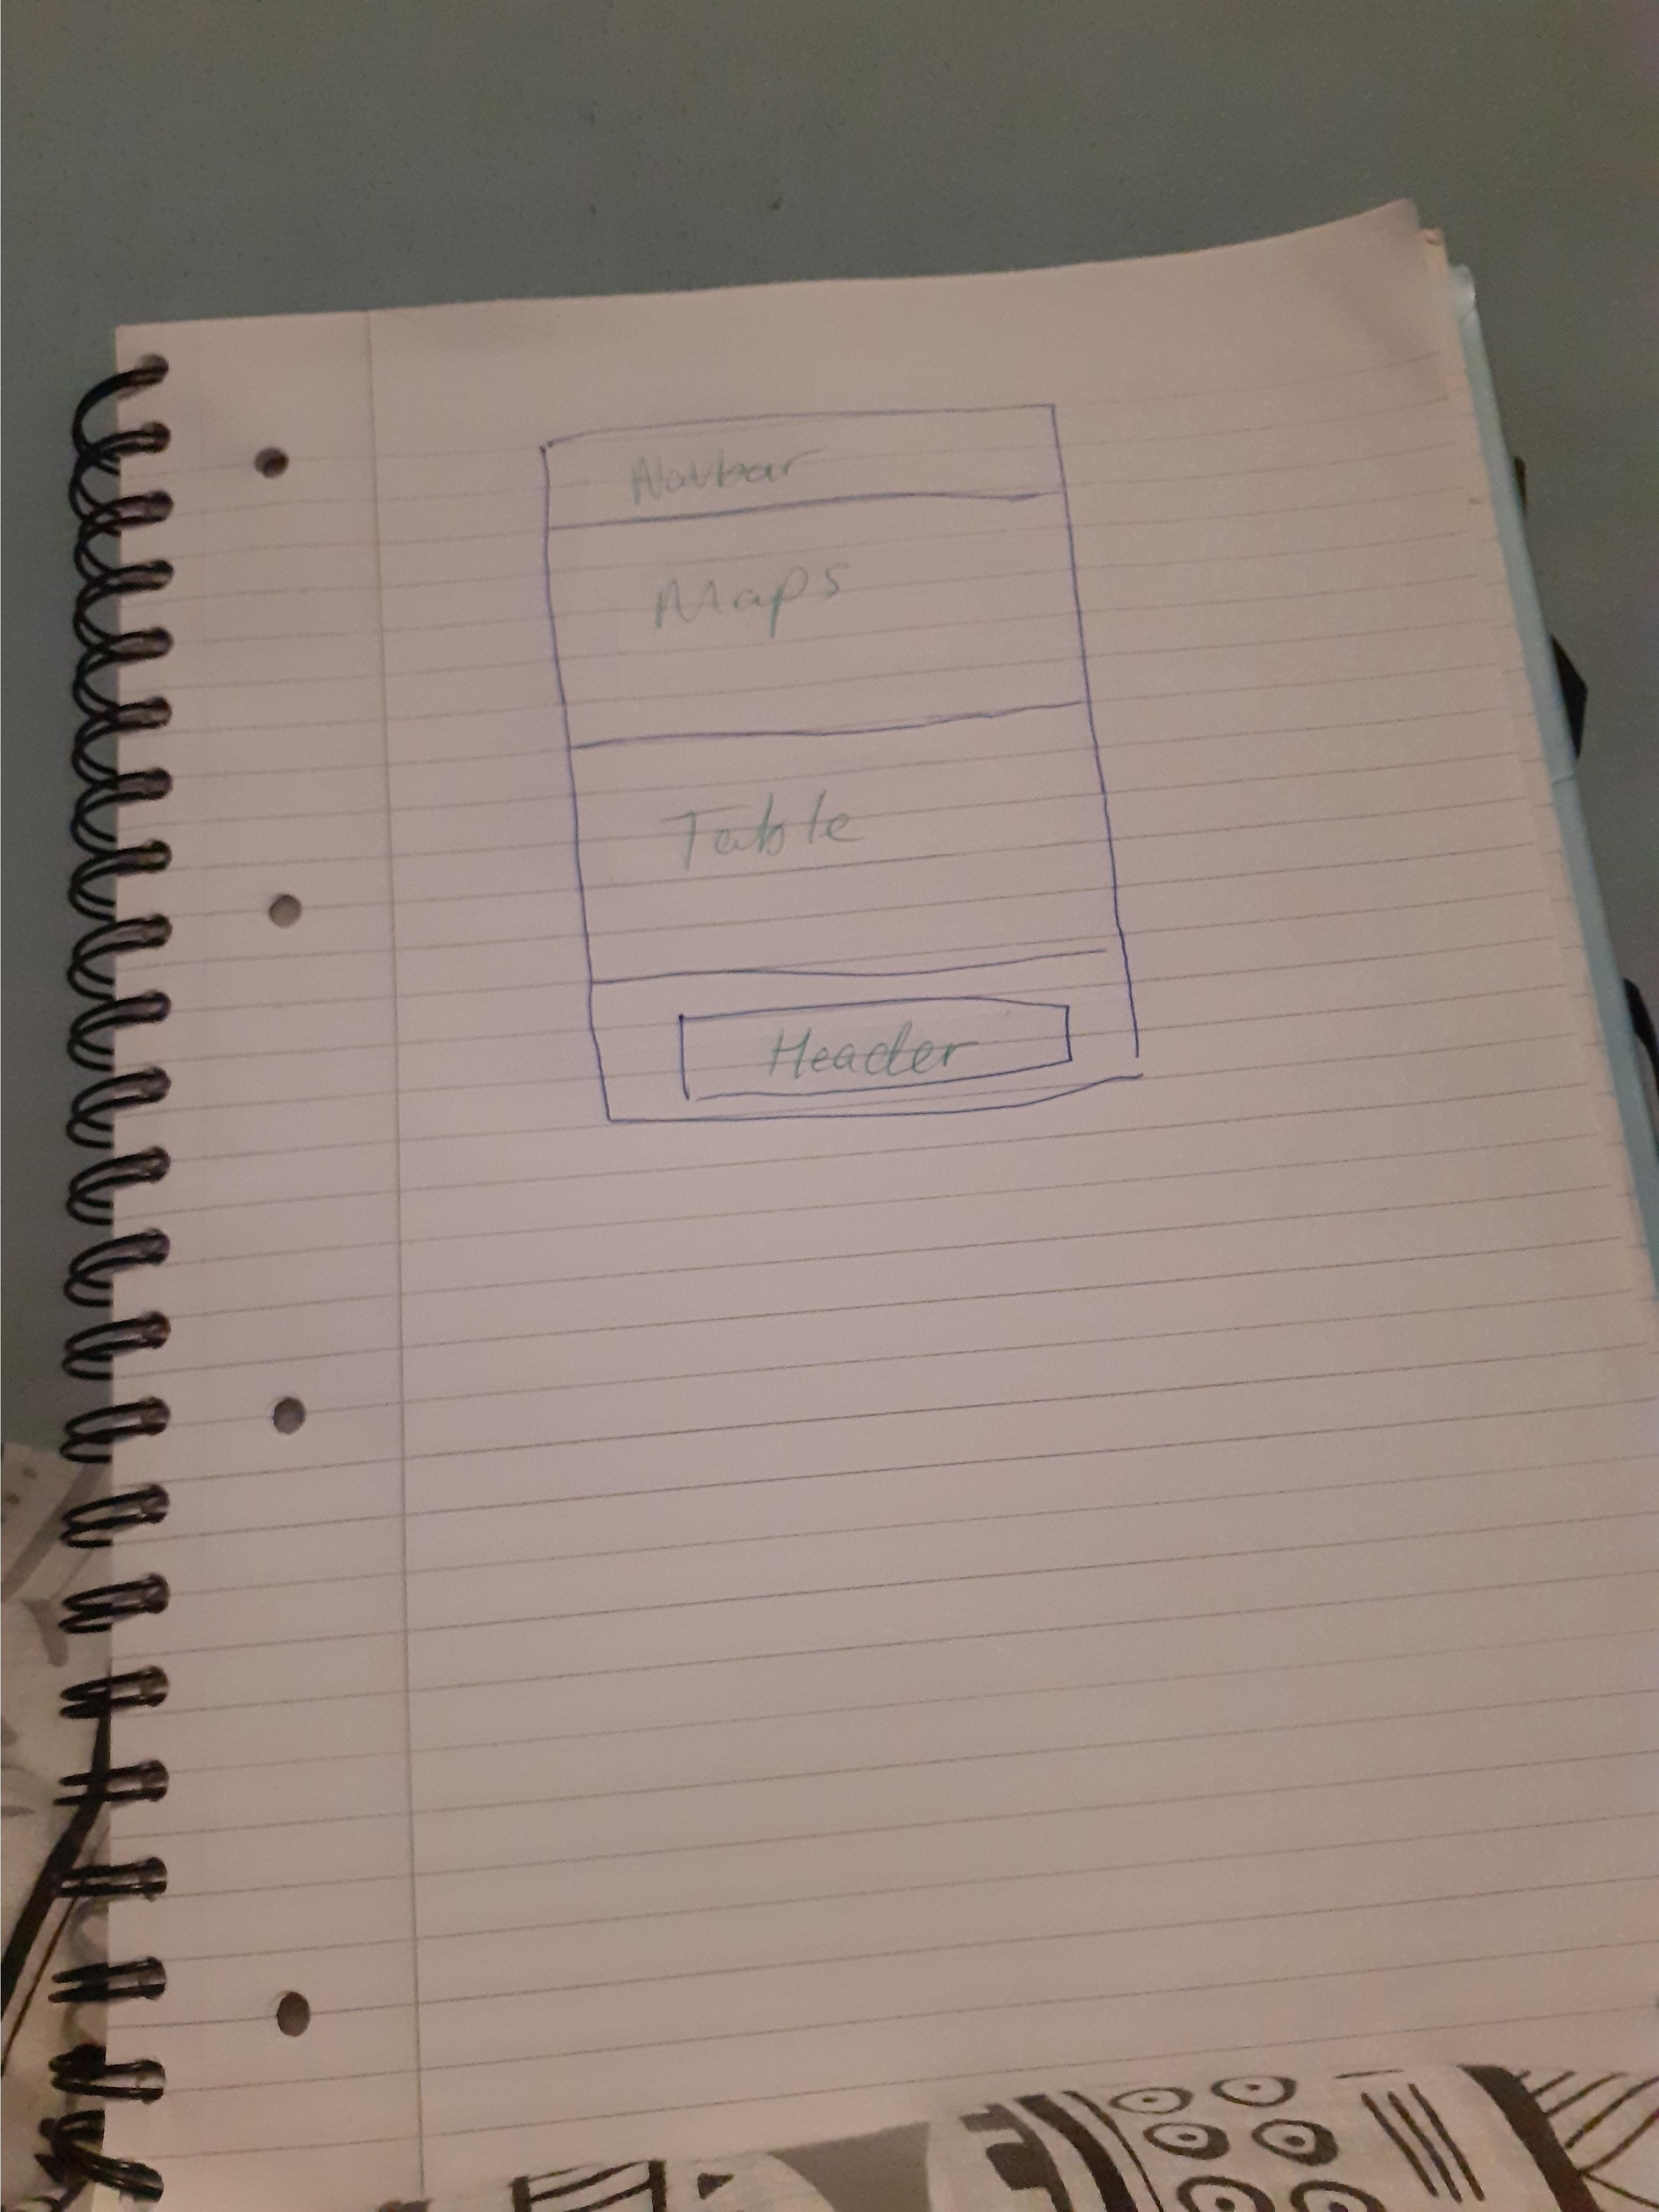 Navbar
Maps
Table
Header